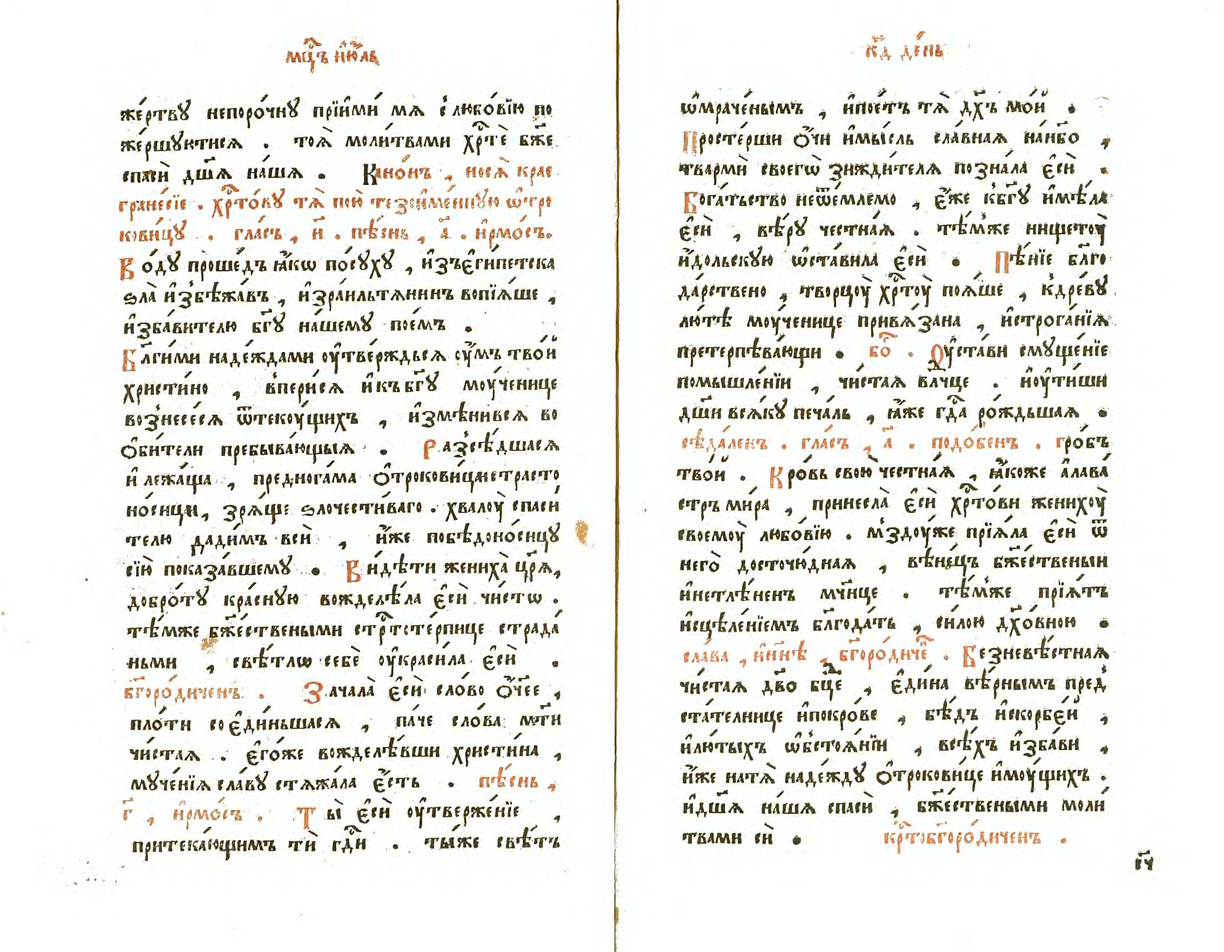 мц҃ъ їю́ль
же́ртвꙋ непоро́чнꙋ прїими́ мѧ с любо́вїю по
же́ршꙋютисѧ . тоѧ̀ моли́твами хрⷭ҇тѐ бж҃е
спасѝ дш҃ѧ на́шѧ . Кано́нъ , носѧ̀ крае
гране́сїе . хрⷭ҇то́вꙋ тѧ пою̀ тезоиме́ннꙋю ѻ҆тро
кови́цꙋ . гла́съ , и҃ . пѣ́снь , а҃ . и҆рмо́съ .
Во́дꙋ проше́дъ ꙗ҆́кѡ по́сꙋхꙋ , и҆зъ є҆ги́петска
ѕла̀ и҆збѣжа́въ , и҆зра́ильтѧнинъ вопїѧ́ше ,
и҆зба́вителю бг҃ꙋ на́шемꙋ пое́мъ .
Бл҃ги́ми наде́ждами ᲂу҆твержьсѧ ᲂу҆́мъ тво́й
христи́но , вперѝсѧ и҆къ бг҃ꙋ мᲂу́ченице
вознесесѧ ѿтекᲂу́щихъ , и҆змѣни́всѧ во
ѻ҆би́тели пребыва́ющыѧ . Разсѣ́дшасѧ
и҆ лежа́ща , пред̾нога́ма ѻ҆трокови́ца и҆страсто
но́сицы , зрѧ́ще ѕлочести́ваго . хвалᲂу̀ спаси́
телю дади́мъ всѝ , и҆́же побѣдоно́сицꙋ
сїю̀ показа́вшемꙋ . Ви́дѣти жениха̀ цр҃ѧ̀ ,
добро́тꙋ кра́снꙋю вожделѣ́ла є҆сѝ чи́стѡ .
тѣ́мже бж҃е́ствеными стрⷭ҇тоте́рпице страда́
ньми , свѣ́тлѡ себѐ ᲂу҆краси́ла є҆сѝ .
бг҃оро́диченъ . Зачала̀ є҆сѝ сло́во ѻ҆́ч҃ее ,
пло́ти соє҆ди́ньшаясѧ , па́че сло́ва мт҃и
чи́стаѧ . є҆го́же вожделѣ́вши христи́на ,
мꙋче́нїѧ сла́вꙋ стѧжа́ла є҆́сть . пѣ́снь ,
г҃ , и҆рмо́съ . Ты̀ є҆сѝ ᲂу҆твержде́нїе ,
притека́ющимъ тѝ гд҃и . ты́же свѣ́тъ
к҃д де́нь
ѡ҆мраче́нымъ , и҆пое́тъ тѧ̀ дх҃ъ мо́й .
Просте́рши ѻ҆́чи и҆мы́сль сла́внаѧ на́нбо ,
тва́рми своегѡ̀ зижди́телѧ позна́ла є҆сѝ .
Бога́тьство неѿе́млемо , є҆́же къбг҃ꙋ и҆мѣ́ла
є҆сѝ , вѣ́рꙋ честна́ѧ . тѣ́мже нищетᲂу̀
и҆́дольскꙋю ѡ҆ста́вила є҆сѝ . Пѣ́нїе бл҃го
да́рствено , творцᲂу̀ хрⷭ҇тᲂу̀ поѧ́ше , кдре́вꙋ
лю́тѣ мᲂу́ченице привѧ́зана , и҆строга́нїѧ
претерпѣва́ющи . бо҃ . Оу҆ста́ви смꙋще́нїе
помышле́нїи , чи́стаѧ влⷣчце . и҆ᲂу҆тишѝ
дш҃и всѧ́кꙋ печа́ль , ꙗ҆́же гдⷭ҇а ро́ждьшаѧ .
сѣда́ленъ . гла́съ , а҃ . подо́бенъ . гро́бъ
тво́й . Кро́вь свою̀ честна́ѧ , ꙗ҆́коже а҆лава́
стръ ми́ра , принесла̀ є҆сѝ хрⷭ҇то́ви женихᲂу̀
своемᲂу̀ любо́вїю . мздᲂу́же прїѧ́ла є҆сѝ ѿ
него̀ досточю́днаѧ , вѣне́цъ бж҃е́ственыи
и҆нетлѣ́ненъ мч҃нце . тѣ́мже прїѧ́тъ
и҆сцѣле́нїемъ бл҃года́ть , си́лою дх҃о́вною .
сла́ва , и҆ ны́нѣ , бг҃оро́диче . Безневѣ́стнаѧ
чи́стаѧ дв҃о бц҃е , є҆ди́на вѣ́рнымъ пред
ста́телнице и҆покро́ве , бѣ́дъ и҆скорбе́й ,
и҆лю́тыхъ ѡ҆бстоѧ́нїи , всѣ́хъ и҆зба́ви ,
и҆́же натѧ̀ наде́ждꙋ ѻ҆трокови́це и҆мᲂу́щихъ .
и҆дш҃ѧ на́шѧ спасѝ , бж҃е́ствеными моли́
твами сѝ . крⷭ҇тобг҃оро́диченъ .